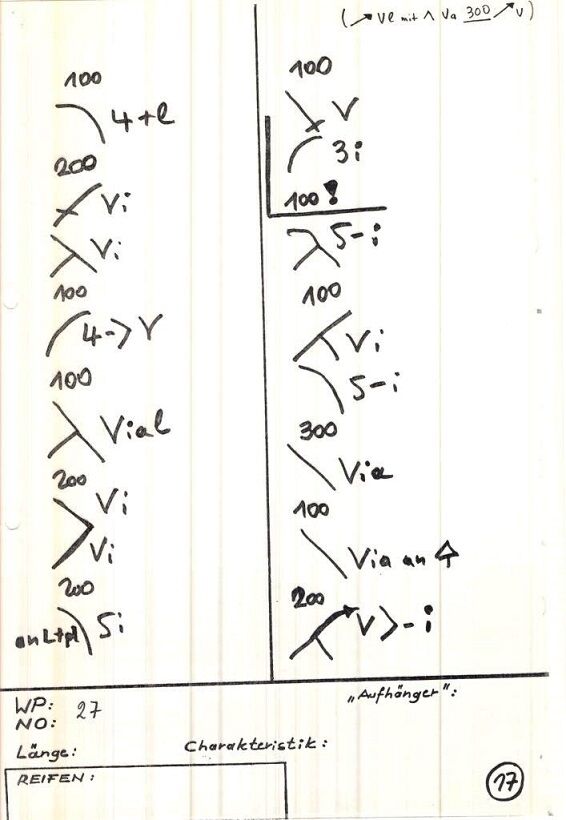 (↗ Ve mit ∧ Va 300 ↗ V)
100
4+l
200
Vi
Vi
100
4-> V
100
Vial
200
Vi
Vi
200
an Ltpl 5i
100
V
3i
100!
5-i
100
Vi
5-i
300
Via
100
Via an
200
V>-i
WP: 27
NO:
"Aufhänger":
Länge: Charakteristik:
REIFEN:
17